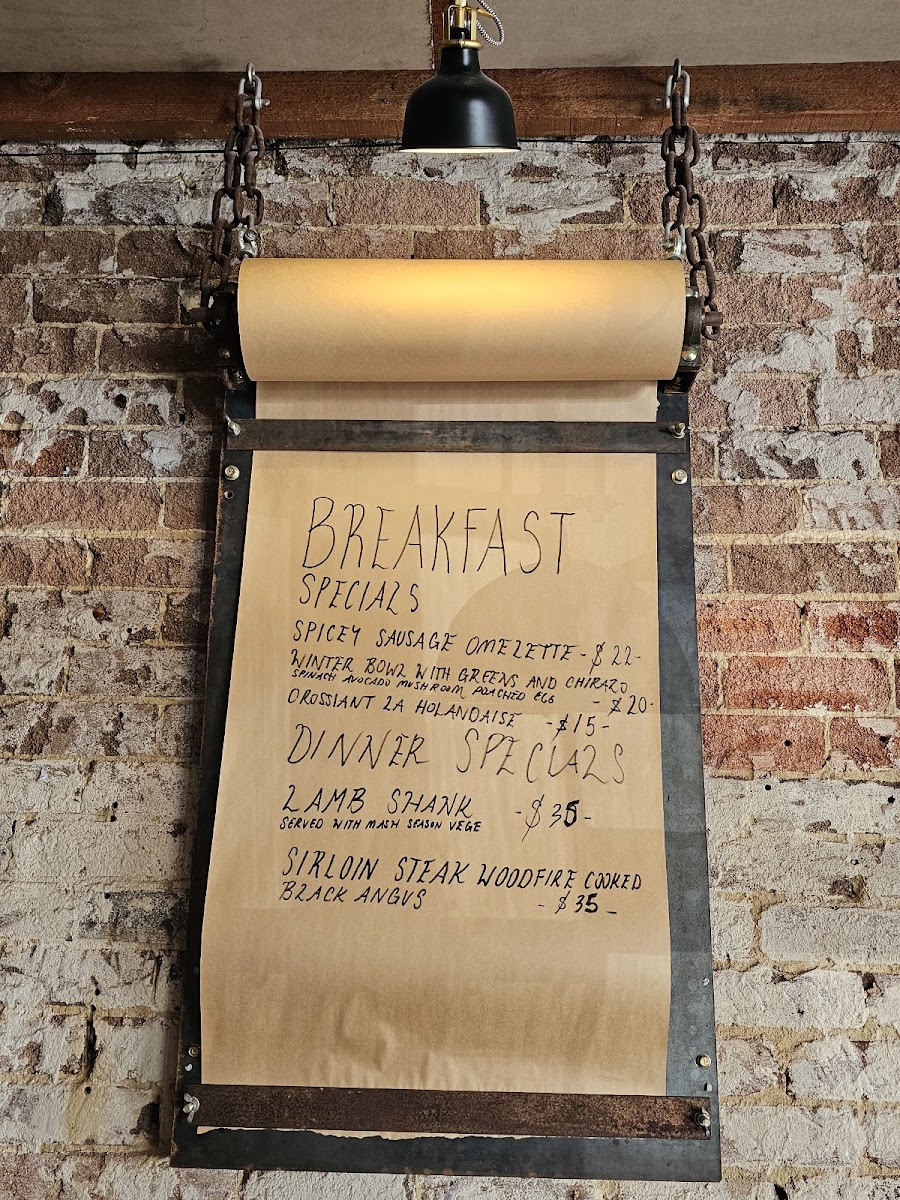 BREAKFAST
SPECIALS
SPICEY SAUSAGE OMELETTE - $ 22-
WINTER BOWL WITH GREENS AND CHIRAZO
SPINACH AVOCADO MUSHROOM POACHED EGG - $20-
CROSSIANT LA HOLANDAISE - $15-
DINNER SPECIALS
LAMB SHANK -$35-
SERVED WITH MASH SEASON VEGE
SIRLOIN STEAK WOODFIRE COOKED
BLACK ANGUS - $35-